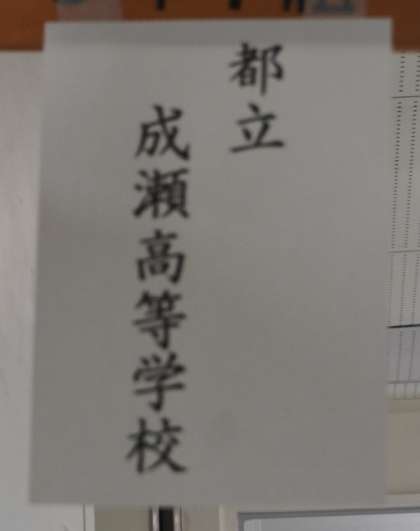 都立
成瀬高等学校